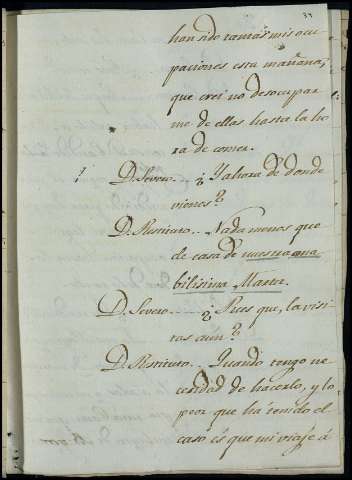 37
han sido tantas mis ocu
paciones esta mañana,
que creí no desocupar
me de ellas hasta la ho
ra de comer.
D. Severo. ¿Y ahora de donde
vienes?
D. Restituto. Nada menos que
de casa de nuestra ama
bilisima Marter.
D. Severo. ¿Pues que, la visi
tas aun?
D. Restituto. Quando tengo ne
cesidad de hacerlo, y lo
peor que ha tenido el
caso és que mi viaje á